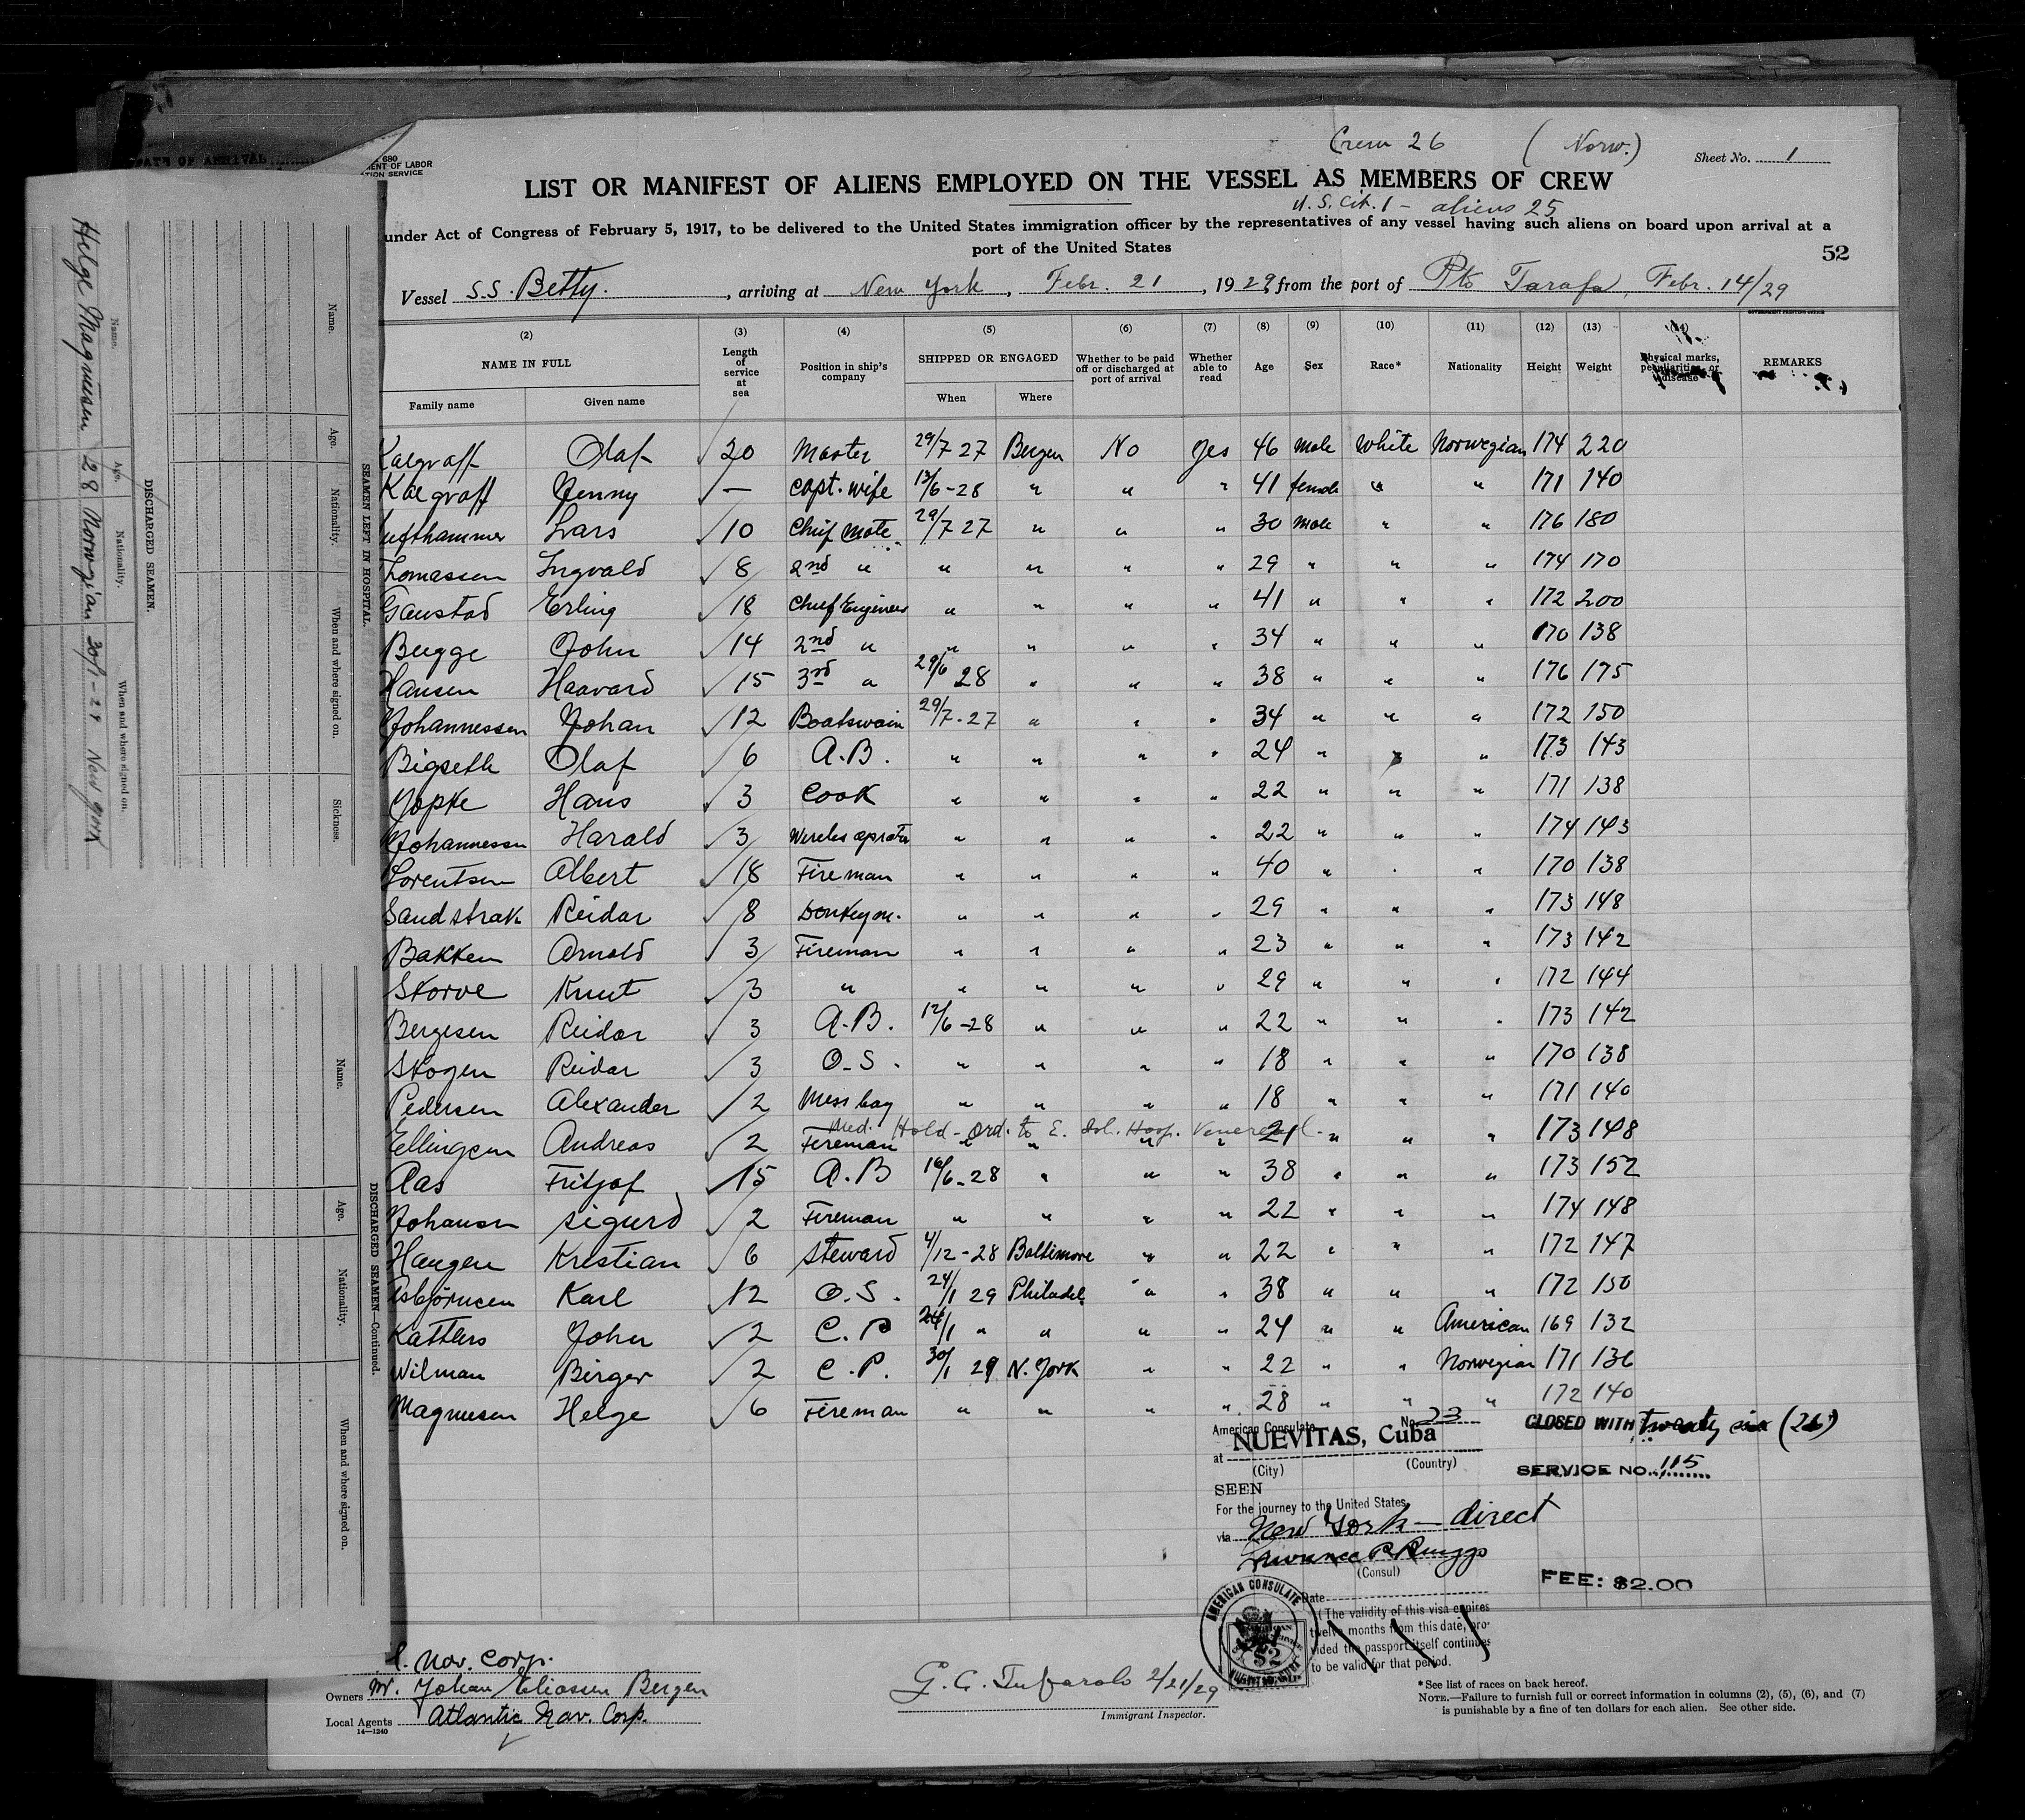 Crew 26 ( Norw.) Sheet No. 1
680
MENT OF LABOR
TION SERVICE
LIST OR MANIFEST OF ALIENS EMPLOYED ON THE VESSEL AS MEMBERS OF CREW
U.S. Cit. 1 - aliens 25
under Act of Congress of February 5, 1917, to be delivered to the United States immigration officer by the representatives of any vessel having such aliens on board upon arrival at a
port of the United States
52
Vessel S.S. Betty. , arriving at New York , Febr. 21 , 1929, from the port of Pto Tarafa, Febr. 14/29
GOVERNMENT PRINTING OFFICE
(2) (3) (4) (5) (6) (7) (8) (9) (10) (11) (12) (13) (14)
NAME IN FULL Length of service at sea Position in ship's company SHIPPED OR ENGAGED Whether to be paid off or discharged at port of arrival Whether able to read Age Sex Race* Nationality Height Weight Physical marks, peculiarities, or disease REMARKS
Family name Given name When Where
Kalgraff Olaf √ 20 Master 29/7 27 Bergen No Yes 46 male White Norwegian 174 220
Kalgraff Jenny √ — Capt. wife 13/6-28 " " " 41 female " " 171 140
ufthammer Lars √ 10 Chief mate 29/7 27 " " " 30 male " " 176 180
Thomassen Ingvald √ 8 2nd " " " " " 29 " " " 174 170
Gaustad Erling √ 18 Chief Engineer " " " " 41 " " " 172 200
Bugge John √ 14 2nd " " " " " 34 " " " 170 138
Hansen Haavard √ 15 3rd " 29/6 28 " " " 38 " " " 176 175
Johannessen Johan √ 12 Boatswain 29/7-27 " " " 34 " " " 172 150
Bigseth Olaf √ 6 A.B. " " " " 24 " " " 173 143
Jopke Hans √ 3 Cook " " " " 22 " " " 171 138
Johannessen Harald √ 3 Wireles oprator " " " " 22 " " " 174 143
Lorentsen Albert √ 18 Fireman " " " " 40 " " " 170 138
Sandstrak Reidar √ 8 Donkeym. " " " " 29 " " " 173 148
Bakken Arnold √ 3 Fireman " " " " 23 " " " 173 142
Skorve Knut √ 3 " " " " " 29 " " " 172 144
Bergesen Reidar √ 3 A.B. 12/6-28 " " " 22 " " " 173 142
Skogen Reidar √ 3 O.S. " " " " 18 " " " 170 138
Pedersen Alexander √ 2 Mess boy " " " " 18 " " " 171 140
Med. Hold - Ord. to E. Isl. Hosp. Venereal.
Ellingsen Andreas √ 2 Fireman " " " " 21 " " " 173 148
Aas Fritjof √ 15 A.B 16/6-28 " " " 38 " " " 173 152
Johansen Sigurd √ 2 Fireman " " " " 22 " " " 174 148
Haugen Kristian √ 6 Steward 4/12-28 Baltimore " " 22 " " " 172 147
Asbjörnsen Karl √ 12 O.S. 24/1 29 Philadel. " " 38 " " " 172 150
Kattlers John √ 2 C.P 24/1 " " " " 24 " " American 169 132
Wilman Birger √ 2 C.P. 30/1 29 N. York " " 22 " " Norwegian 171 136
Magnusen Helge √ 6 Fireman " " " " 28 " " " 172 140
American Consulate No. 23
at NUEVITAS, Cuba
(City) (Country)
SEEN
For the journey to the United States
via New York - direct
Lawrence P. Briggs
(Consul)
Date
(The validity of this visa expires
twelve months from this date, provided
the passport itself continues
to be valid for that period.
CLOSED WITH twenty six (26)
SERVICE NO. 115
FEE: $2.00
AMERICAN CONSULATE
$2
Nav. Corp.
Owners Johan Eliassen Bergen
Local Agents Atlantic Nav. Corp.
14—1240
2/21/29
Immigrant Inspector.
*See list of races on back hereof.
NOTE.—Failure to furnish full or correct information in columns (2), (5), (6), and (7)
is punishable by a fine of ten dollars for each alien. See other side.
DATE OF ARRIVAL
SEAMEN LEFT IN HOSPITAL.
Name. Age. Nationality. When and where signed on. Sickness.
DISCHARGED SEAMEN.
Name. Age. Nationality. When and where signed on.
Helge Magnusen 28 Norwegian 30/1-29 New York
DISCHARGED SEAMEN—Continued.
Name. Age. Nationality. When and where signed on.